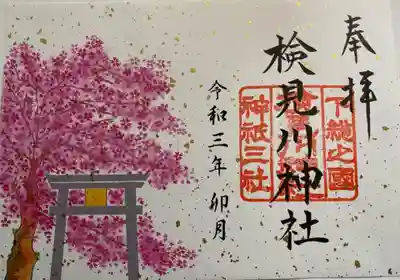 奉拝
下総之國
検見川神社
神祇三社
令和三年 卯月